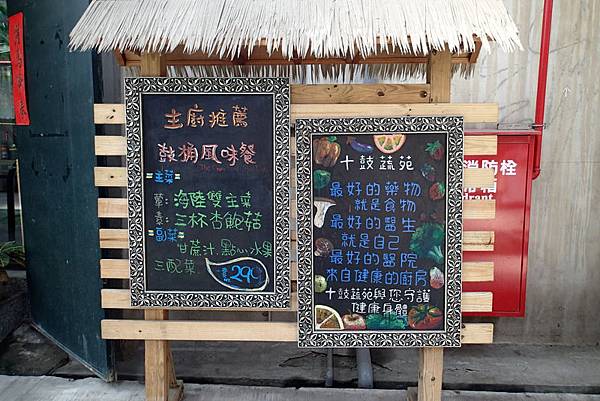 主廚推薦
鼓桶風味餐
=主菜=
葷:海陸雙主菜
素:三杯杏鮑菇
=副菜=
甘蔗汁.點心.水果
三配菜
290
十鼓蔬苑
最好的藥物
就是食物
最好的醫生
就是自己
最好的醫院
來自健康的廚房
十鼓蔬苑與您守護
健康身體
消防栓